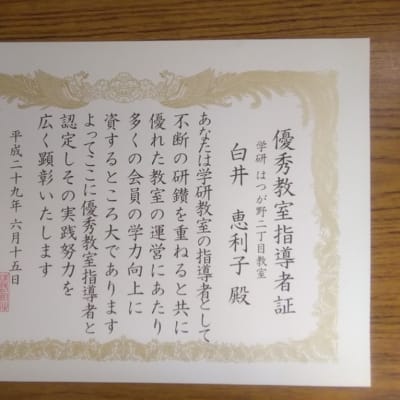 優秀教室指導者証
学研 はつが野二丁目教室
白井 恵利子 殿
あなたは学研教室の指導者として
不断の研鑽を重ねると共に
優れた教室の運営にあたり
多くの会員の学力向上に
資するところ大であります
よってここに優秀教室指導者と
認定しその実践努力を
広く顕彰いたします
平成二十九年 六月十五日